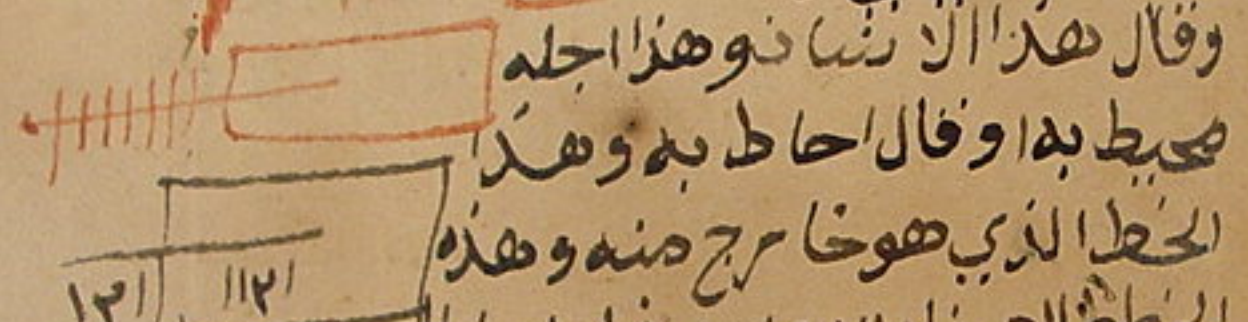 وقال هذا الانسان وهذا اجله
محيط به او قال احاط به وهذا
الخط الذي هو خارج منه وهذه